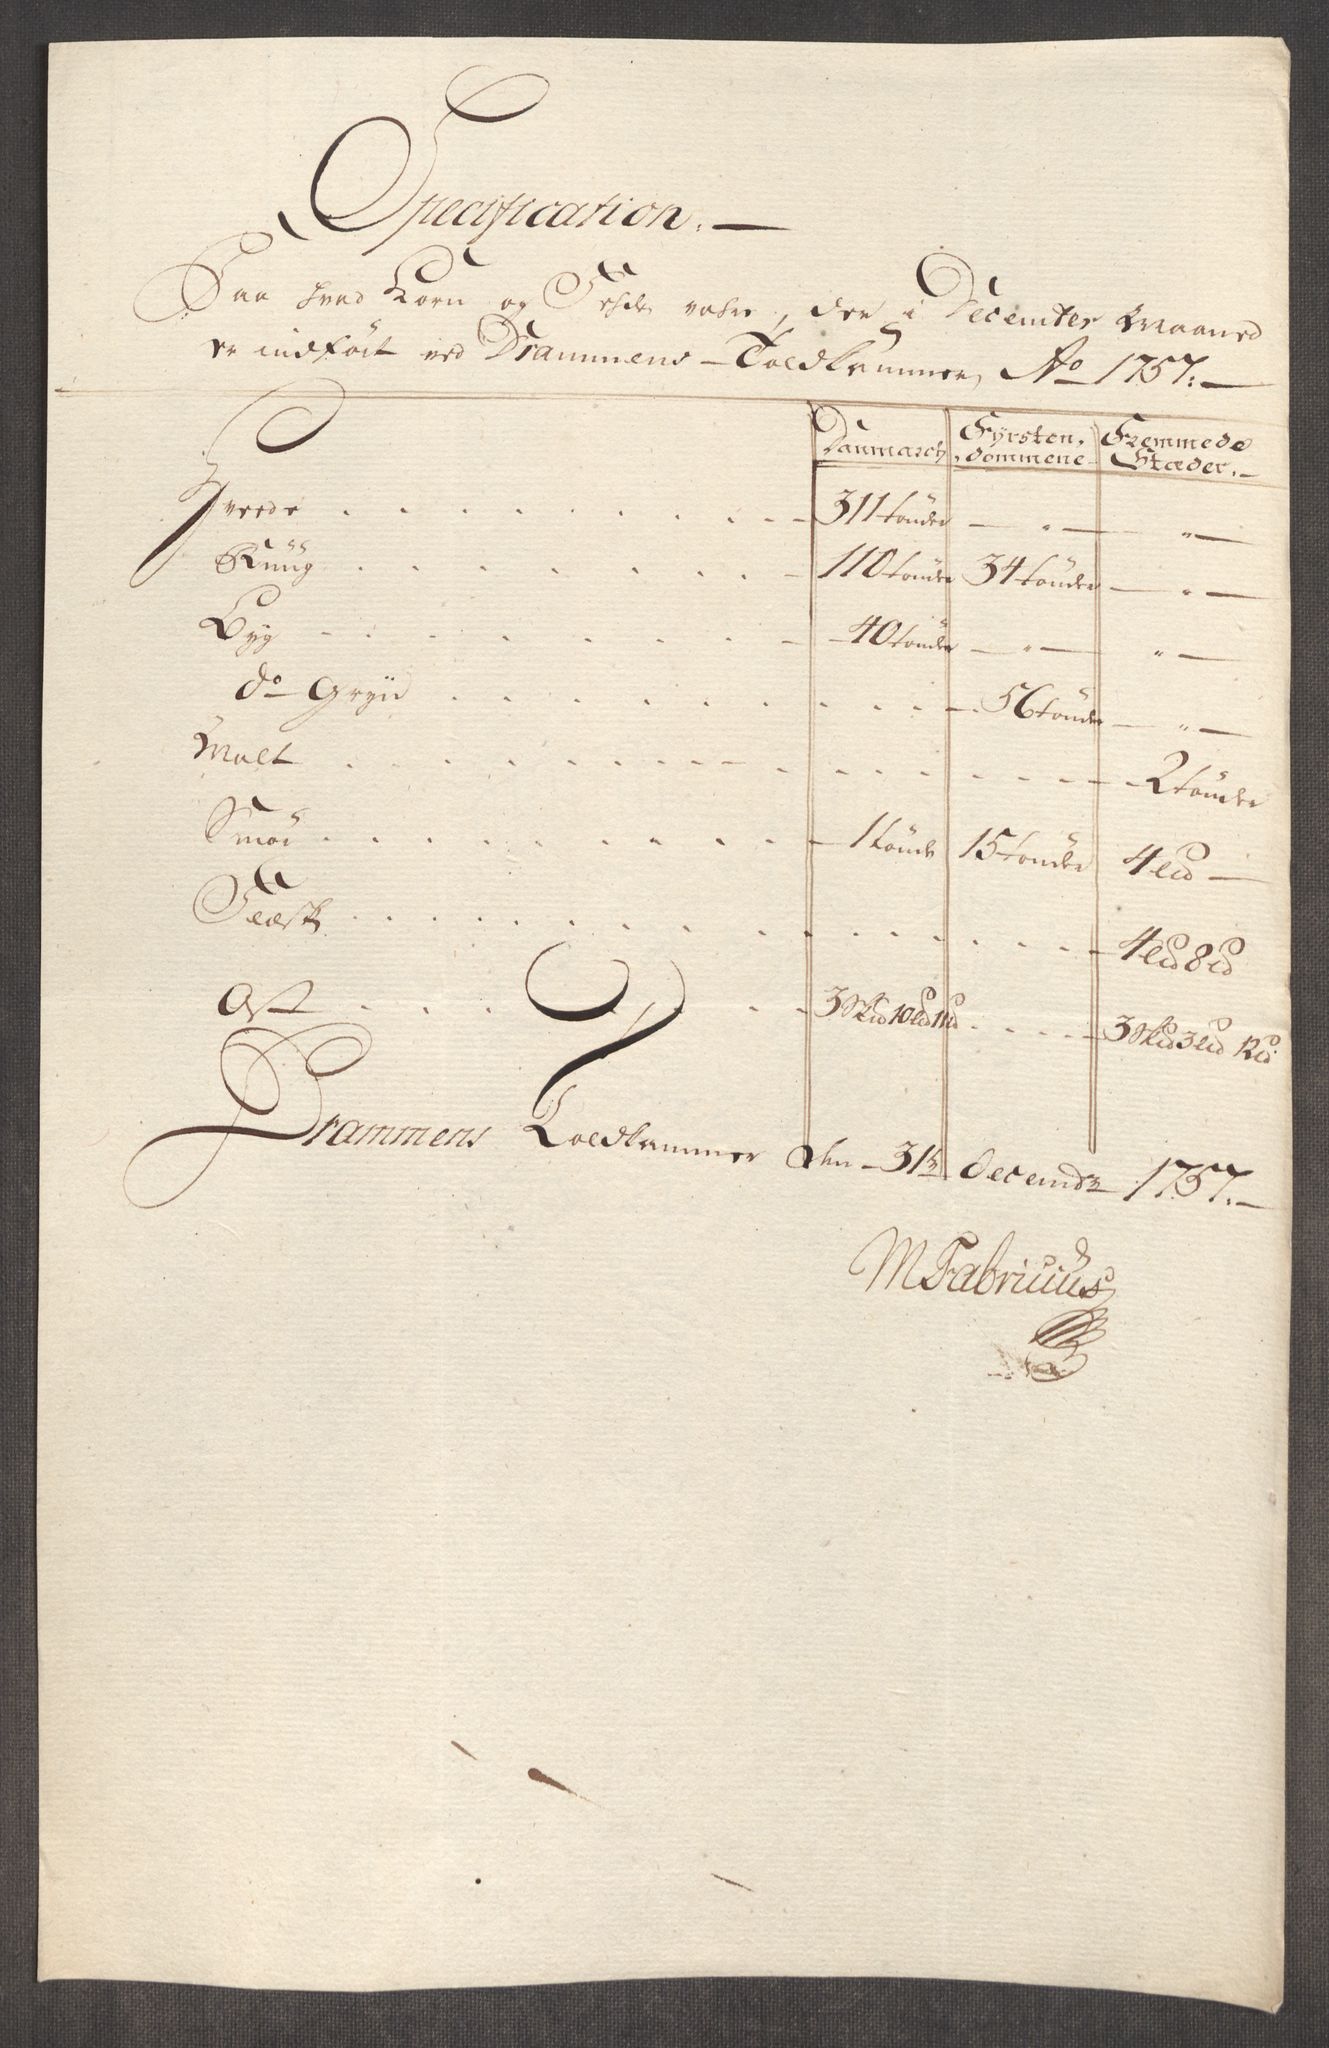 Specification. —
Paa hvad Korn og Fehde vahre, der i December Maaned
er indført ved Drammens Toldkammer, Ao 1757. —
Danmarch Fyrsten, dommene Fremmede Stæder. —
Hvede . . . . . . . . . — 311 tönder — " — — " —
Rüüg . . . . . . . . — 110 tönder 34 tönder — " —
Byg . . . . . . . . — 40 tönder — " — " —
do Gryn . . . . . . . . . — 56 tönder — " —
Malt . . . . . . . . . . . . . — 2 tönder
Smör . . . . . . . . . — 1 tönde 15 tönder 4 L℔ —
Flæsk . . . . . . . . . . . . . — 4 L℔ 8 ℔
Ost . . . . . . — 3 Sk℔ 10 L℔ 11 ℔ . . . . — 3 Sk℔ 3 L℔ 12 ℔
Drammens Toldkammer den 31te Decembr 1757. —
M Fabricius